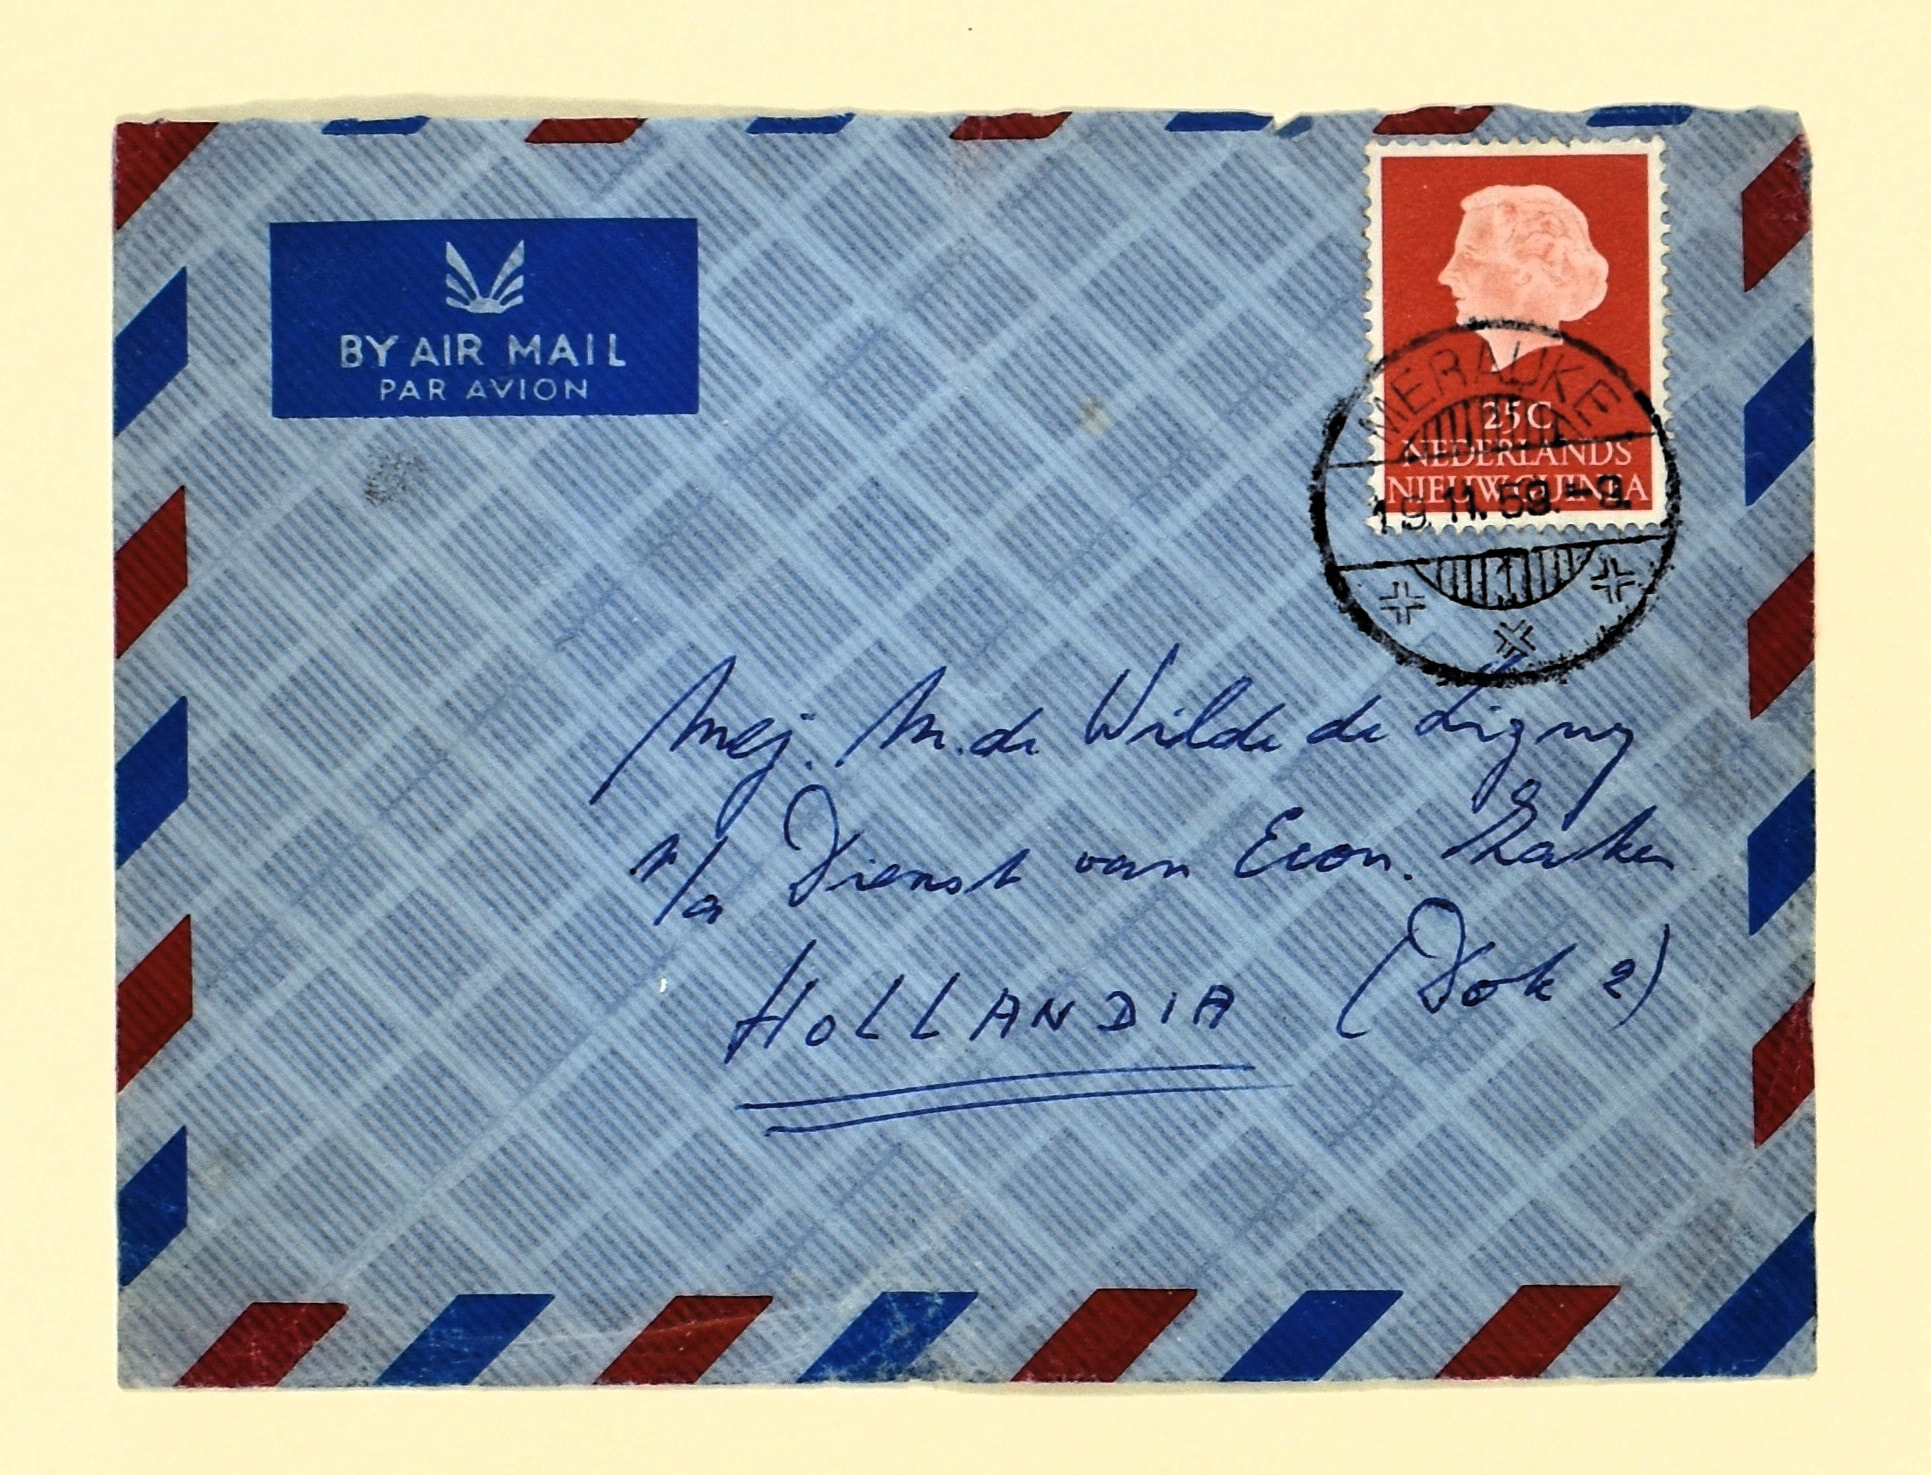 BY AIR MAIL
PAR AVION
25C
NEDERLANDS
NIEUW-GUINEA
MERAUKE
19.11.59.-9.
Mej. M. de Wilde de Ligny
p/a Dienst van Econ. Zaken
HOLLANDIA (Dok 2)